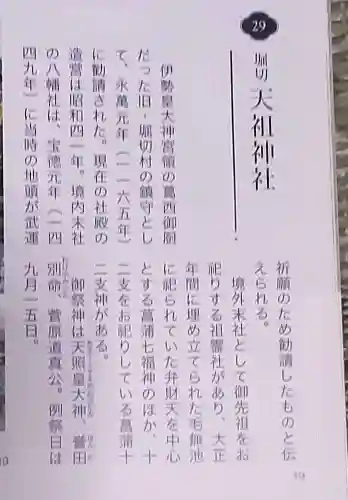 29
堀切 天祖神社
伊勢皇大神宮領の葛西御厨
だった旧・堀切村の鎮守とし
て、永萬元年（一一六五年）
に勧請された。現在の社殿の
造営は昭和四一年。境内末社
の八幡社は、宝徳元年（一四
四九年）に当時の地頭が武運
祈願のため勧請したものと伝
えられる。
境外末社として御先祖をお
祀りする祖霊社があり、大正
年間に埋め立てられた毛無池
に祀られていた弁財天を中心
とする菖蒲七福神のほか、十
二支をお祀りしている菖蒲十
二支神がある。
御祭神は天照皇大神、誉田
別命、菅原道真公。例祭日は
九月一五日。